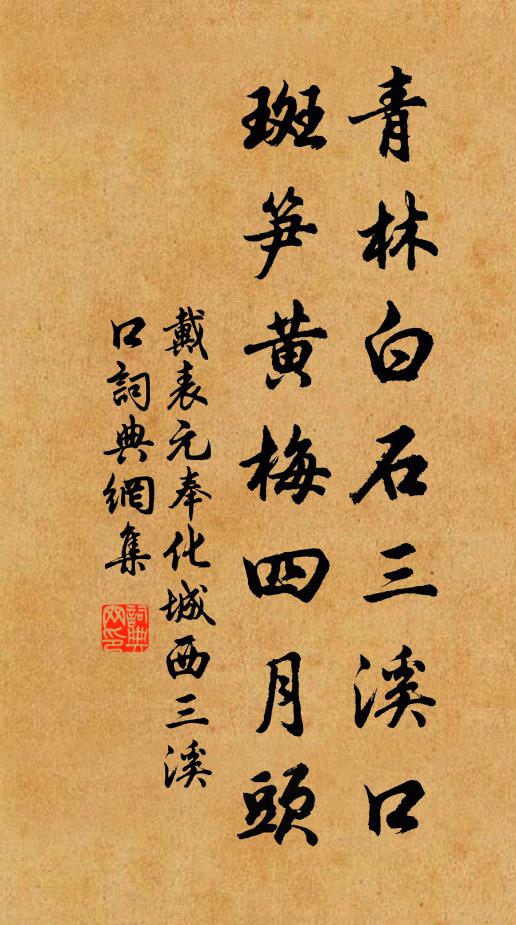 青林白石三溪口
斑笋黄梅四月頭
戴表元奉化城西三溪
口詞典網集
詞典網印